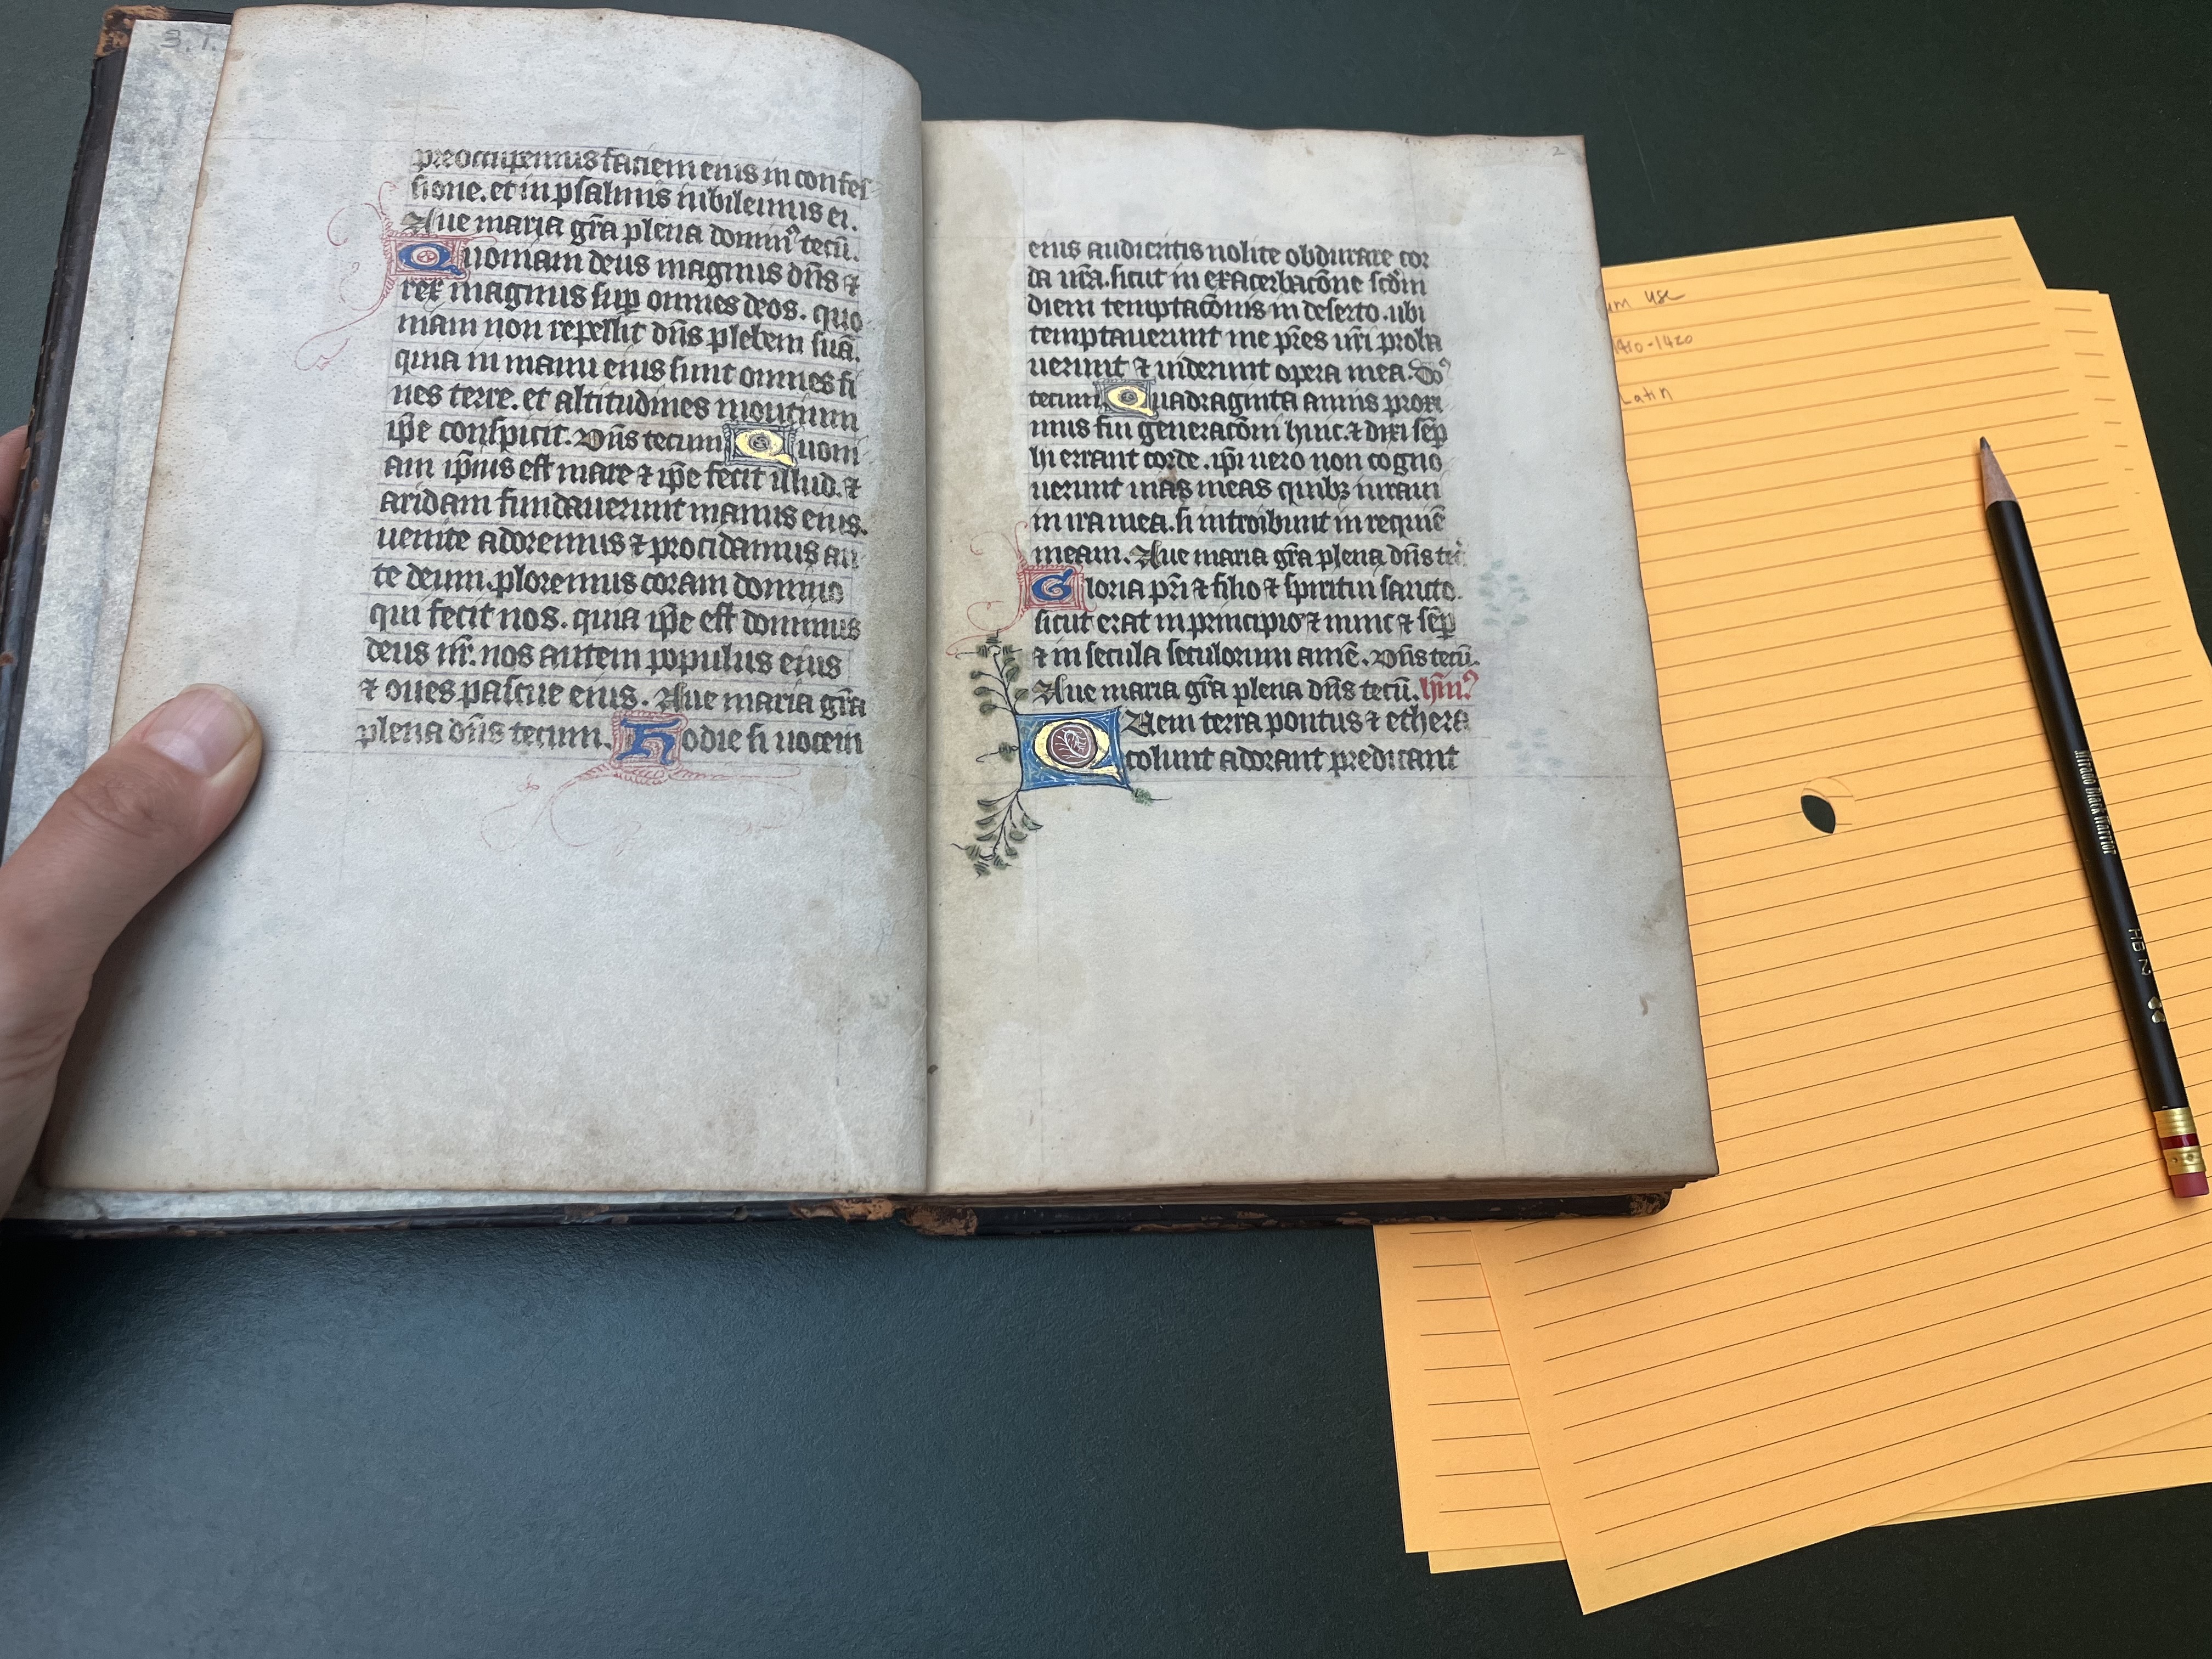 3.1.
preoccupemus faciem eius in confes
sione. et in psalmis iubilemus ei.
Aue maria gr̄a plena domin⁹ tecū.
Quoniam deus magnus dn̄s ⁊
rex magnus sup̱ omnes deos. quo
niam non repellit dn̄s plebem suā.
quia in manu eius sunt omnes fi
nes terre. et altitudines montium
ip̄e conspicit. Dn̄s tecum Quoni
am ip̄ius est mare ⁊ ip̄e fecit illud. ⁊
aridam fundauerunt manus eius.
uenite adoremus ⁊ procidamus an
te deum. ploremus coram domino
qui fecit nos. quia ip̄e est dominus
deus nr̄. nos autem populus eius
⁊ oues pascue eius. Aue maria gr̄a
plena dn̄s tecum. Hodie si uocem
2
eius audieritis nolite obdurare cor
da ur̄a. sicut in exacerbacōne scd̄m
diem temptacōnis in deserto. ubi
temptauerunt me pr̄es ur̄i proba
uerunt ⁊ uiderunt opera mea. Do⁹
tecum Quadraginta annis proxi
mus fui generacōni huic. ⁊ dixi sēp̱
hi errant corde. ip̄i uero non cogno
uerunt uias meas quibꝫ iuraui
in ira mea. si introibunt in requiē
meam. Aue maria gr̄a plena dn̄s tē.
Gloria pr̄i ⁊ filio ⁊ spiritui sancto.
sicut erat in principio ⁊ nunc ⁊ sēp̱
⁊ in secula seculorum amē. Dn̄s tecū.
Aue maria gr̄a plena dn̄s tecū. hȳn⁹
Quem terra pontus ⁊ ethera
colunt adorant predicant
use
1410-1420
Latin
Mirado Black Warrior
HB 2